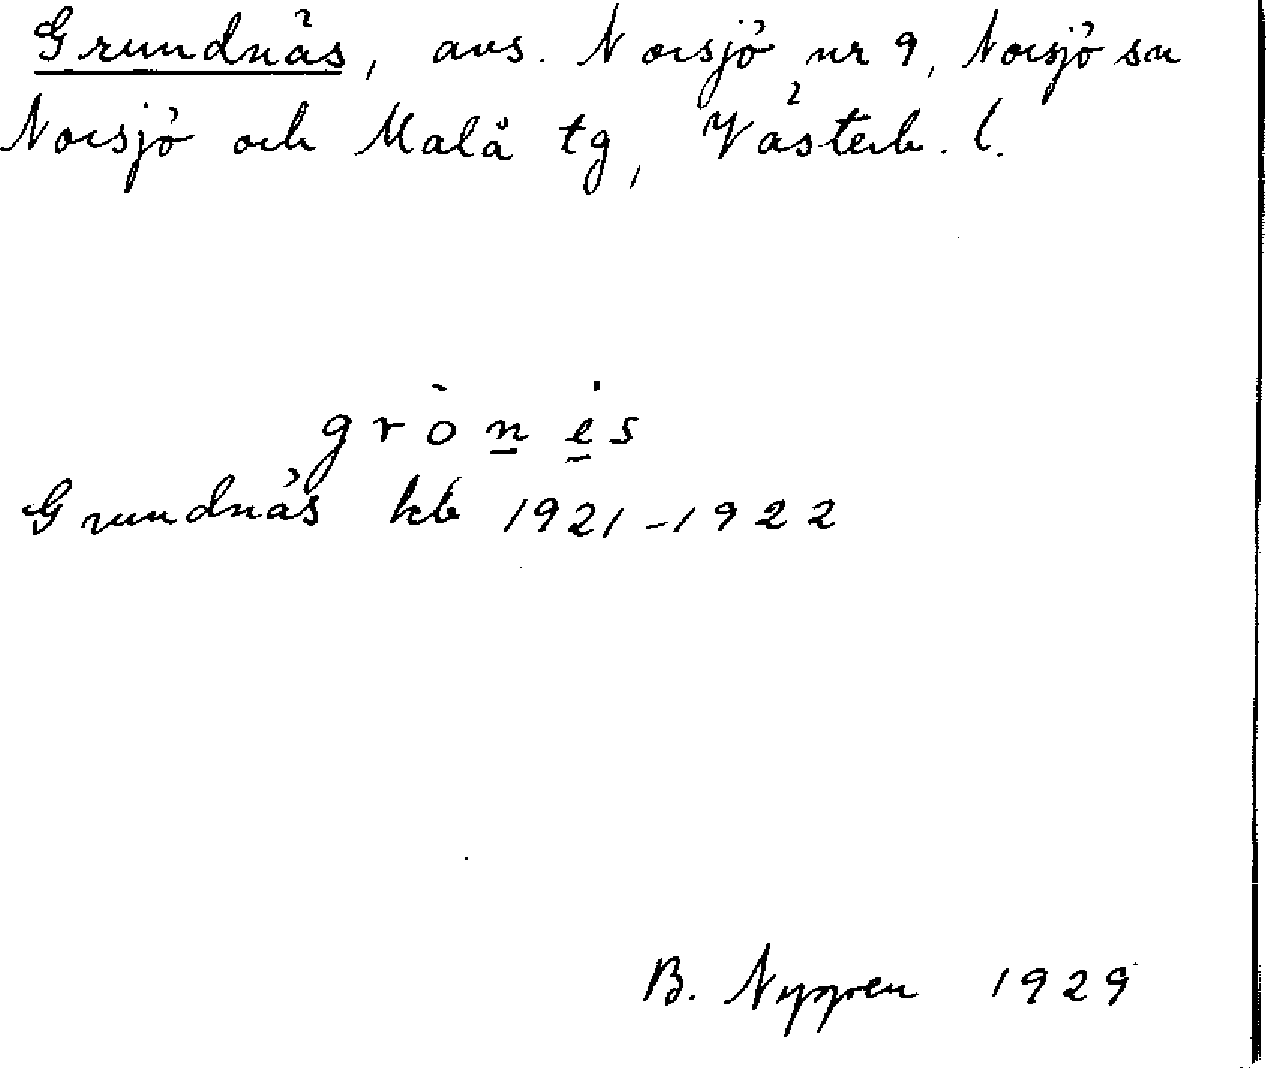 Grundnäs, avs. Norsjö nr 9, Norsjö sn
Norsjö och Malå tg, Västerb. l.
grò̀n̲ė̲s
Grundnäs kb 1921-1922
B. Nygren 1929